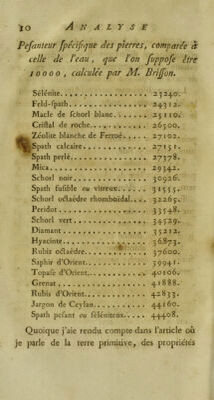 10 ANALYSE
Pesanteur spécifique des pierres, comparée à
celle de l'eau, que l'on suppose être
10000, calculée par M. Brisson.
Sélénite................ 23240.
Feld-spath.............. 24312.
Macle de schorl blanc... 25110.
Cristal de roche........ 26500.
Zéolite blanche de Ferroé. 27102.
Spath calcaire.......... 27151.
Spath perlé............. 27378.
Mica.................... 29342.
Schorl noir............. 30926.
Spath fusible ou vitreux. 31555.
Schorl octaèdre rhomboïdal. 32265.
Peridot................. 33548.
Schorl vert............. 34529.
Diamant................. 35212.
Hyacinte................ 36873.
Rubis octaèdre.......... 37600.
Saphir d'Orient......... 39941.
Topase d'Orient......... 40106.
Grenat.................. 41888.
Rubis d'Orient.......... 42833.
Jargon de Ceylan........ 44160.
Spath pesant ou séléniteux. 44408.
Quoique j'aie rendu compte dans l'article où
je parle de la terre primitive, des propriétés